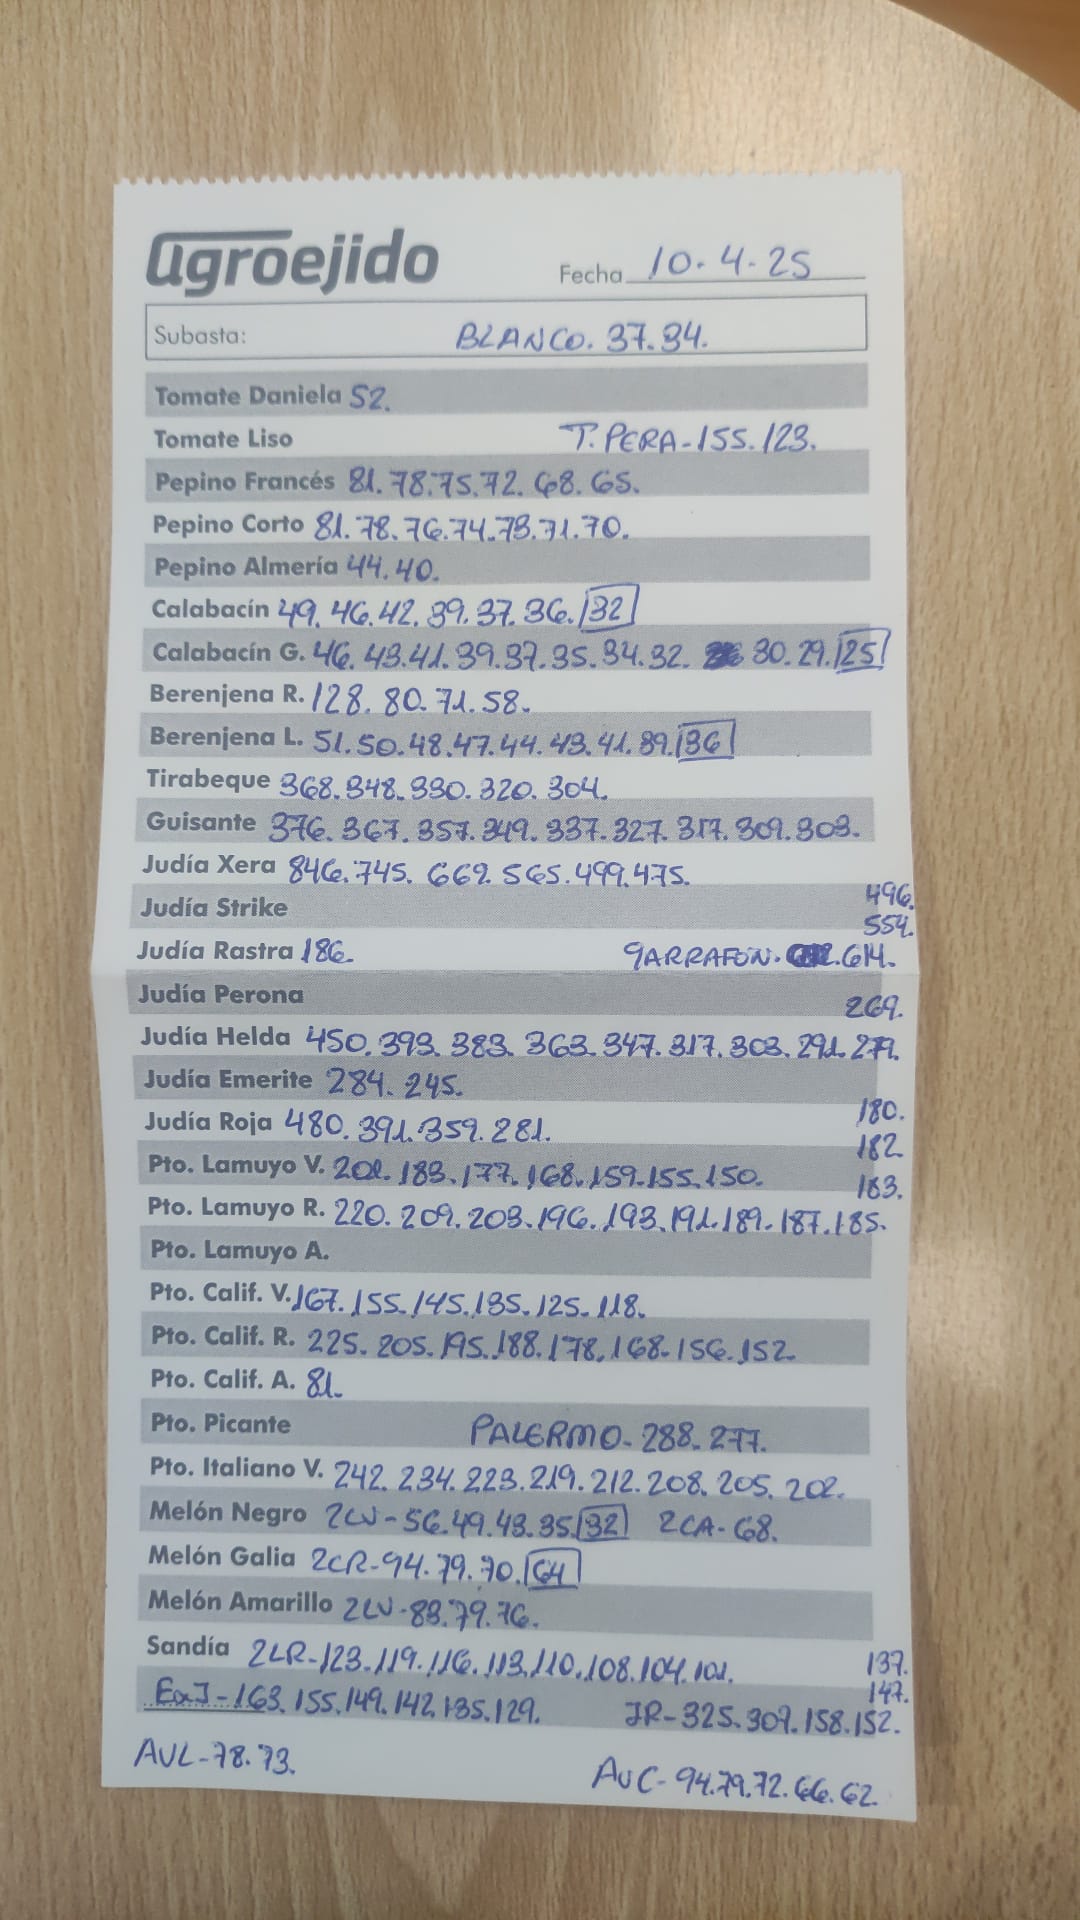 agroejido Fecha 10-4-25
Subasta: BLANCO. 37.34.
Tomate Daniela 52.
Tomate Liso T. PERA-155.123.
Pepino Francés 81.78.75.72.68.65.
Pepino Corto 81.78.76.74.73.71.70.
Pepino Almería 44.40.
Calabacín 49.46.42.39.37.36.32
Calabacín G. 46.43.41.39.37.35.34.32. 30.29.25
Berenjena R. 128.80.71.58.
Berenjena L. 51.50.48.47.44.43.41.39.36
Tirabeque 368.348.330.320.304.
Guisante 376.367.357.349.337.327.317.309.303.
Judía Xera 846.745.669.565.499.475.
496.
Judía Strike
554.
Judía Rastra 186. GARRAFON. 614.
Judía Perona
269.
Judía Helda 450.393.383.363.347.317.303.291.279.
Judía Emerite 284.245.
180.
Judía Roja 480.391.359.281.
182
Pto. Lamuyo V. 202.183.177.168.159.155.150.
183.
Pto. Lamuyo R. 220.209.203.196.193.191.189.187.185.
Pto. Lamuyo A.
Pto. Calif. V. 167.155.145.135.125.118.
Pto. Calif. R. 225.205.195.188.178.168.156.152.
Pto. Calif. A. 81.
Pto. Picante PALERMO-288.277.
Pto. Italiano V. 242.234.223.219.212.208.205.202.
Melón Negro 2LV-56.49.43.35.32 2CA-68.
Melón Galia 2CR-94.79.70.64
Melón Amarillo 2LV-83.79.76.
Sandía 2LR-123.119.116.113.110.108.104.101.
137.
147.
ExJ-163.155.149.142.135.129. JR-325.309.158.152.
AVL-78.73.
AVC-94.79.72.66.62.